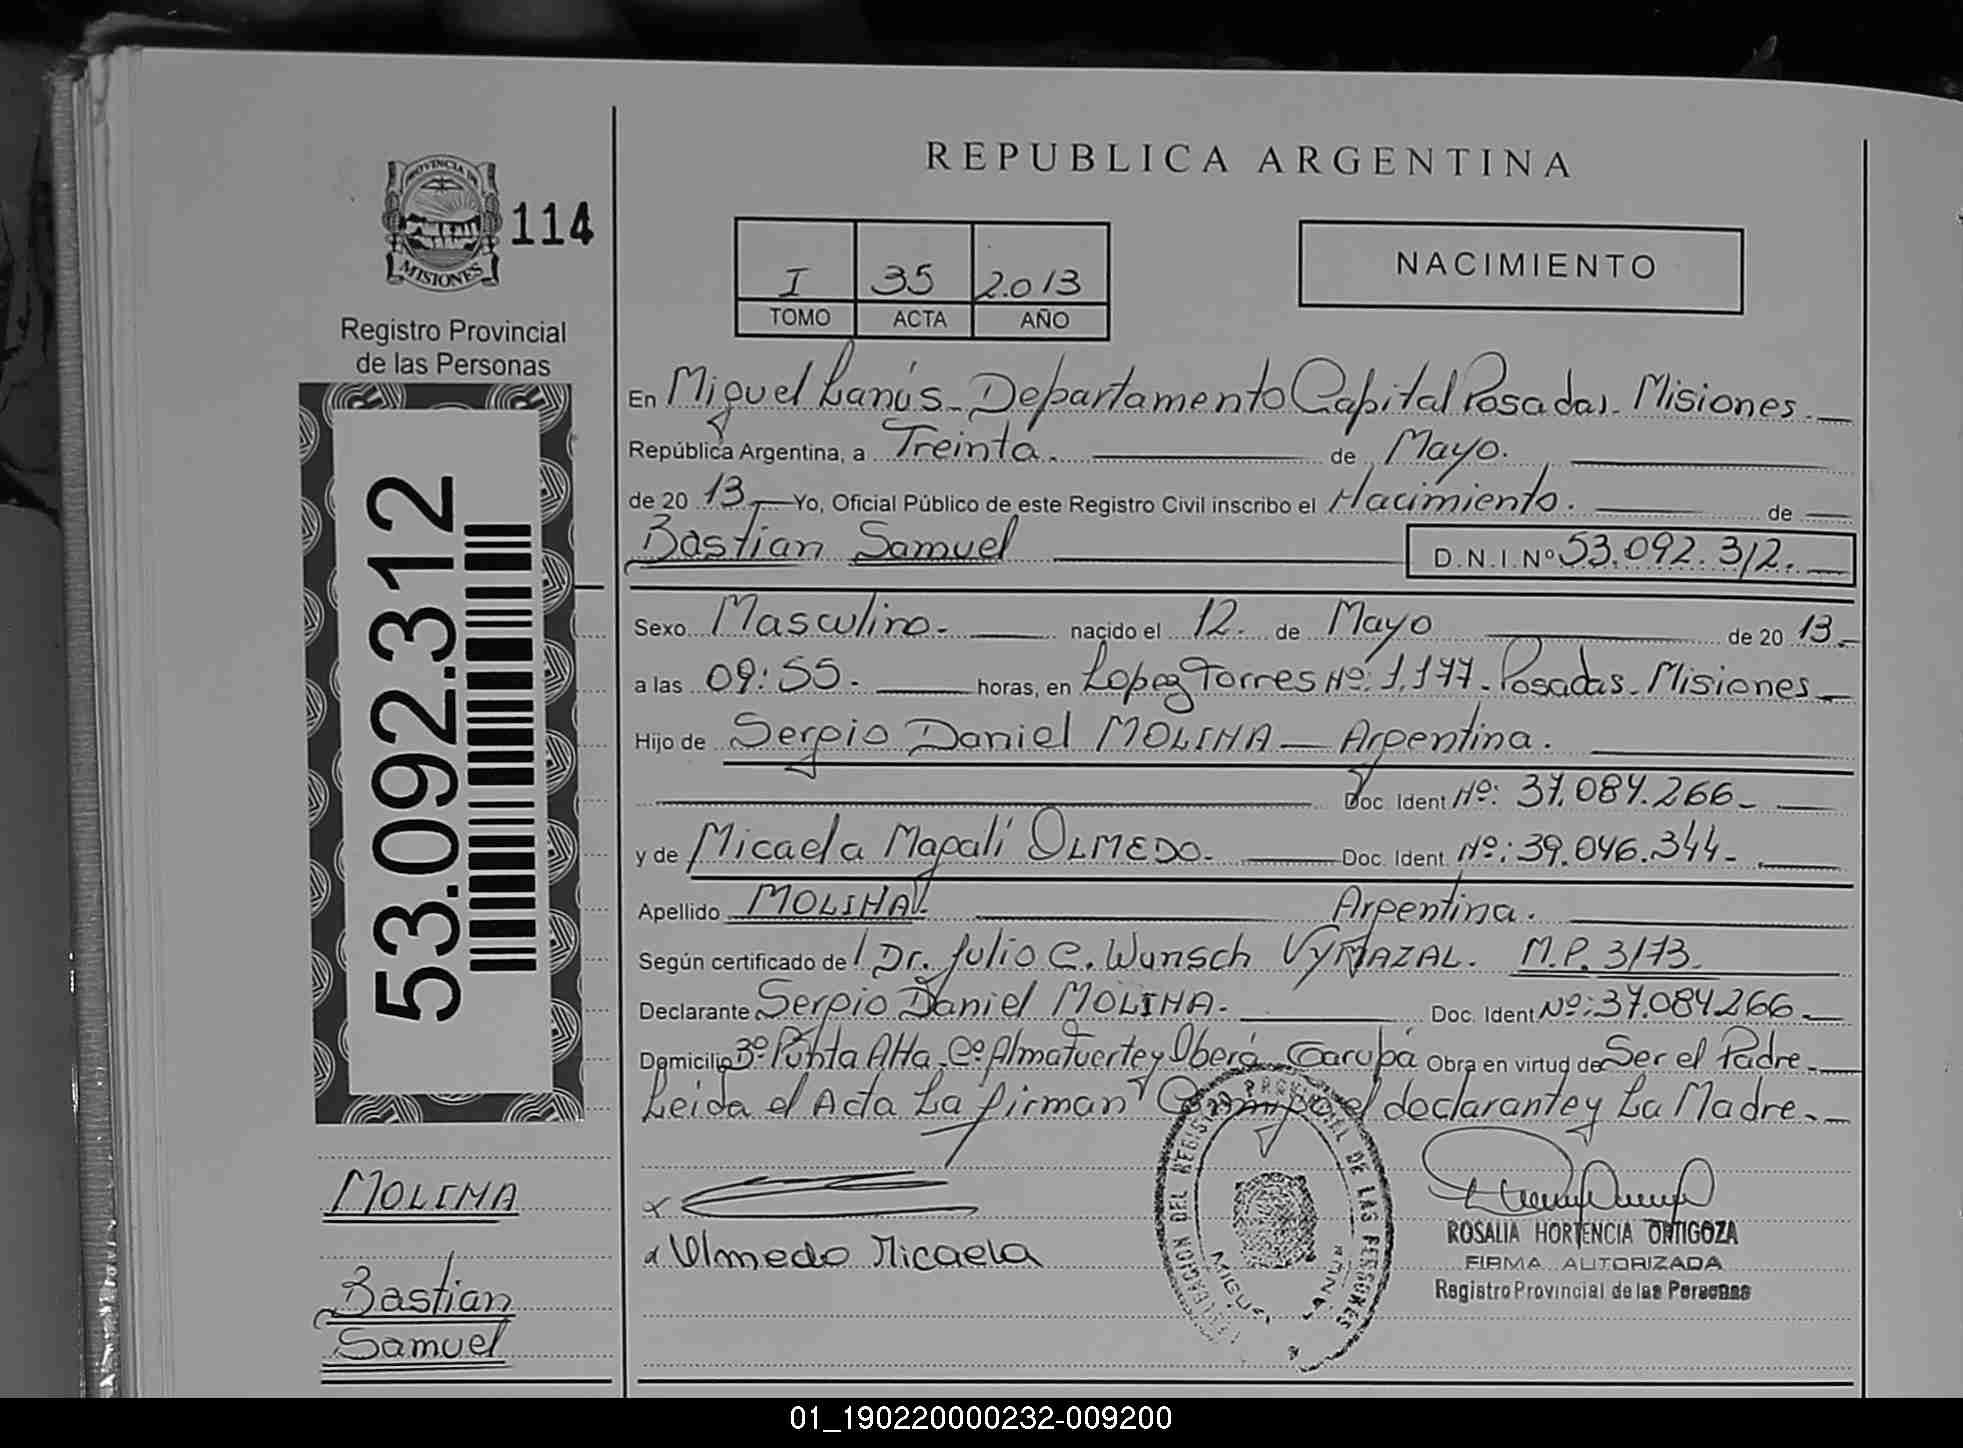 REPUBLICA ARGENTINA
PROVINCIA DE
MISIONES
114
Registro Provincial
de las Personas
I 35 2.013
TOMO ACTA AÑO
NACIMIENTO
En Miguel Lanús - Departamento Capital Posadas - Misiones.
República Argentina, a Treinta. de Mayo.
de 20 13 Yo, Oficial Público de este Registro Civil inscribo el Nacimiento. de
Bastian Samuel D.N.I.Nº 53.092.312.
53.092.312
Sexo Masculino. nacido el 12. de Mayo de 20 13.
a las 09:55. horas, en Lopez Torres Nº: 1.177 - Posadas - Misiones
Hijo de Sergio Daniel MOLINA - Argentina.
Doc. Ident Nº: 37.084.266
y de Micaela Magalí OLMEDO. Doc. Ident. Nº: 39.046.344
Apellido MOLINA. Argentina.
Según certificado de Dr. Julio C. Wunsch VYMAZAL. M.P. 3173.
Declarante Sergio Daniel MOLINA. Doc. Ident. Nº: 37.084.266
Domicilio Bº Punta Alta - Cº Almafuerte y Oberá - Garupá Obra en virtud de Ser el Padre.
Leida el Acta La firman Conmigo el declarante y La Madre.
MOLINA
Bastian
Samuel
Olmedo Micaela
REGISTRO PROVINCIAL DE LAS PERSONAS
MIGUEL LANUS
ROSALIA HORTENCIA ORTIGOZA
FIRMA AUTORIZADA
Registro Provincial de las Personas
01_190220000232-009200